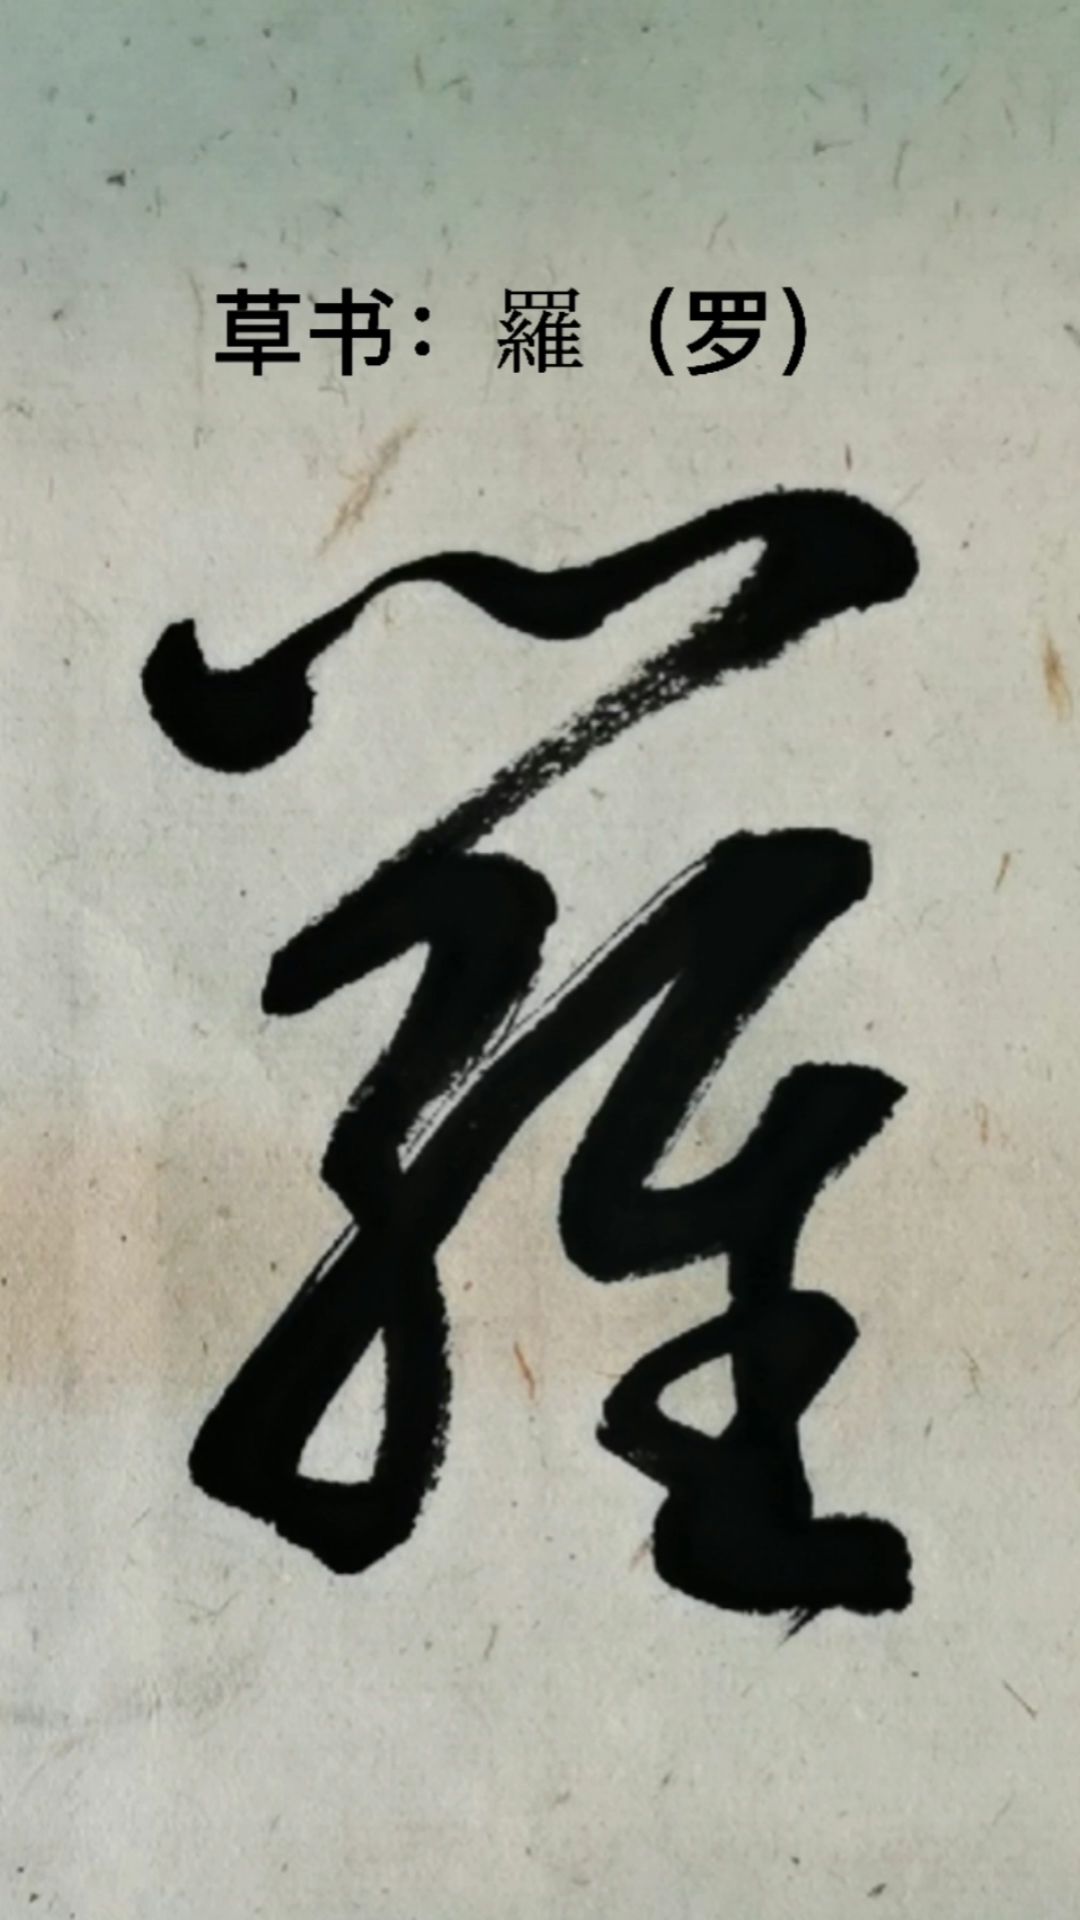 草书：羅（罗）
羅